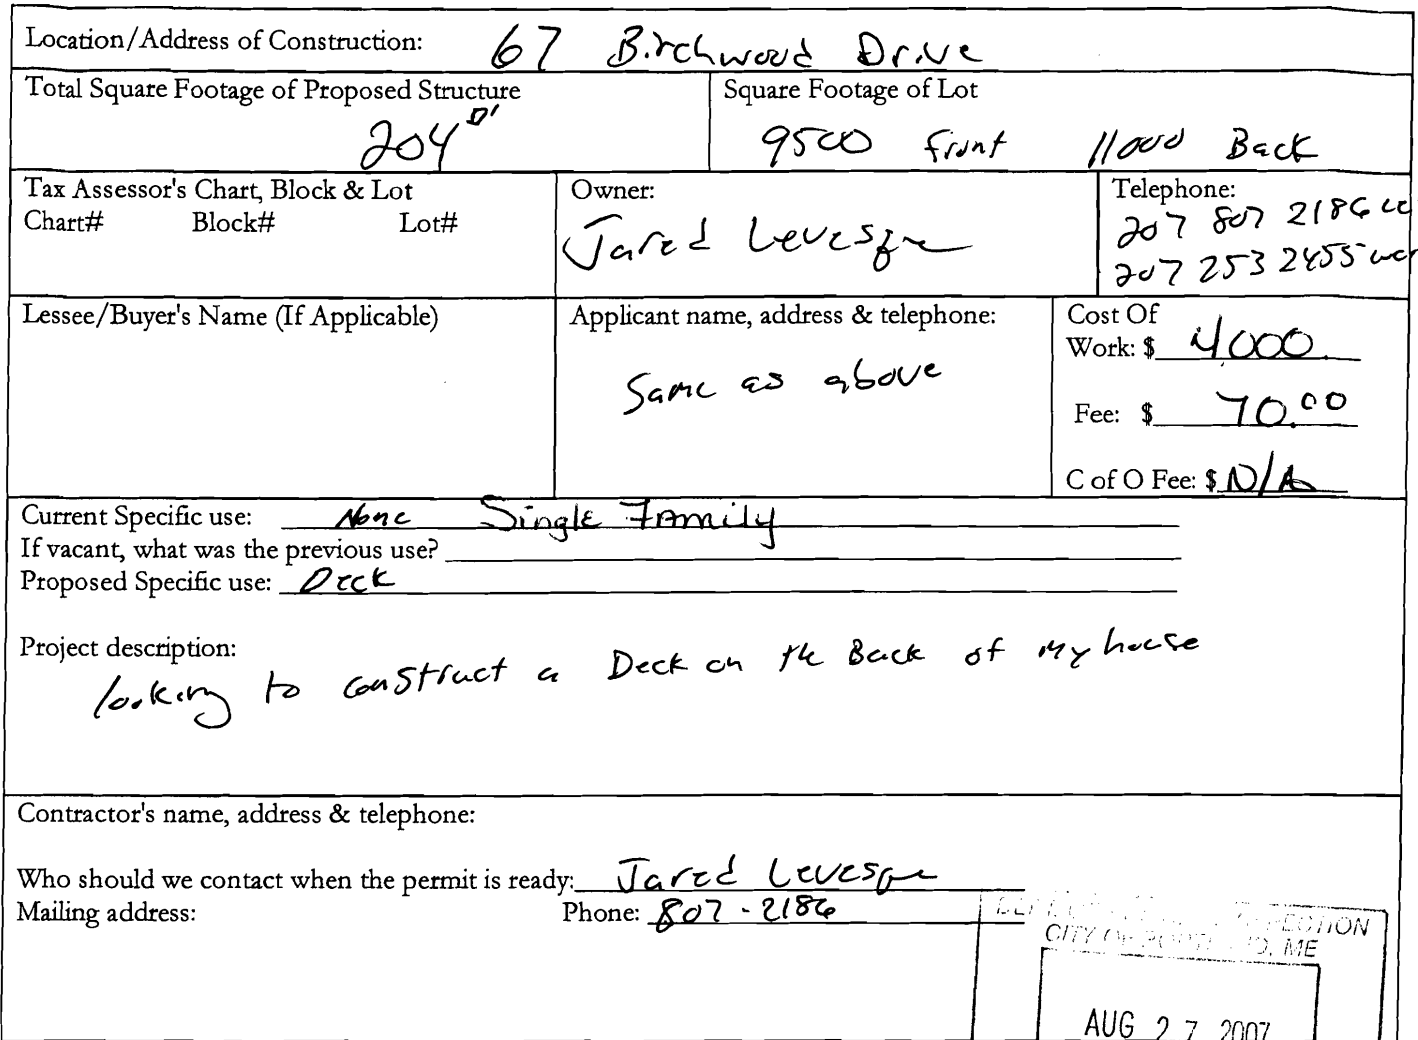 Location/Address of Construction: 67 Birchwood Drive
Total Square Footage of Proposed Structure
204
Square Footage of Lot
9500 front 11000 Back
Tax Assessor's Chart, Block & Lot
Chart# Block# Lot#
Owner:
Jared Levesque
Telephone:
207 807 2186
207 253 2455
Lessee/Buyer's Name (If Applicable)
Applicant name, address & telephone:
Same as above
Cost Of
Work: $ 4000
Fee: $ 70.00
C of O Fee: $ N/A
Current Specific use: None Single Family
If vacant, what was the previous use?
Proposed Specific use: Deck
Project description:
looking to construct a Deck on the Back of my house
Contractor's name, address & telephone:
Who should we contact when the permit is ready: Jared Levesque
Mailing address: Phone: 807-2186
CITY OF PORTLAND, ME
AUG 27 2007